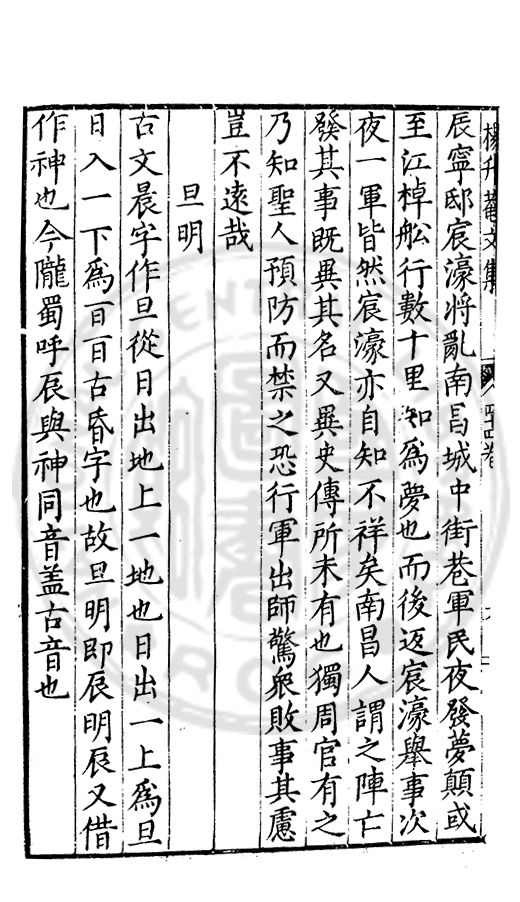 楊升菴文集 卷
辰寧邸宸濠將亂南昌城中街巷軍民夜發夢顛或
至江棹舩行數十里知爲夢也而後返宸濠舉事次
夜一軍皆然宸濠亦自知不祥矣南昌人謂之陣亡
發其事既異其名又異史傳所未有也獨周官有之
乃知聖人預防而禁之恐行軍出師驚衆敗事其慮
豈不遠哉
旦明
古文晨字作旦從日出地上一地也日出一上爲旦
日入一下爲百百古昏字也故旦明即辰明辰又借
作神也今隴蜀呼辰與神同音盖古音也